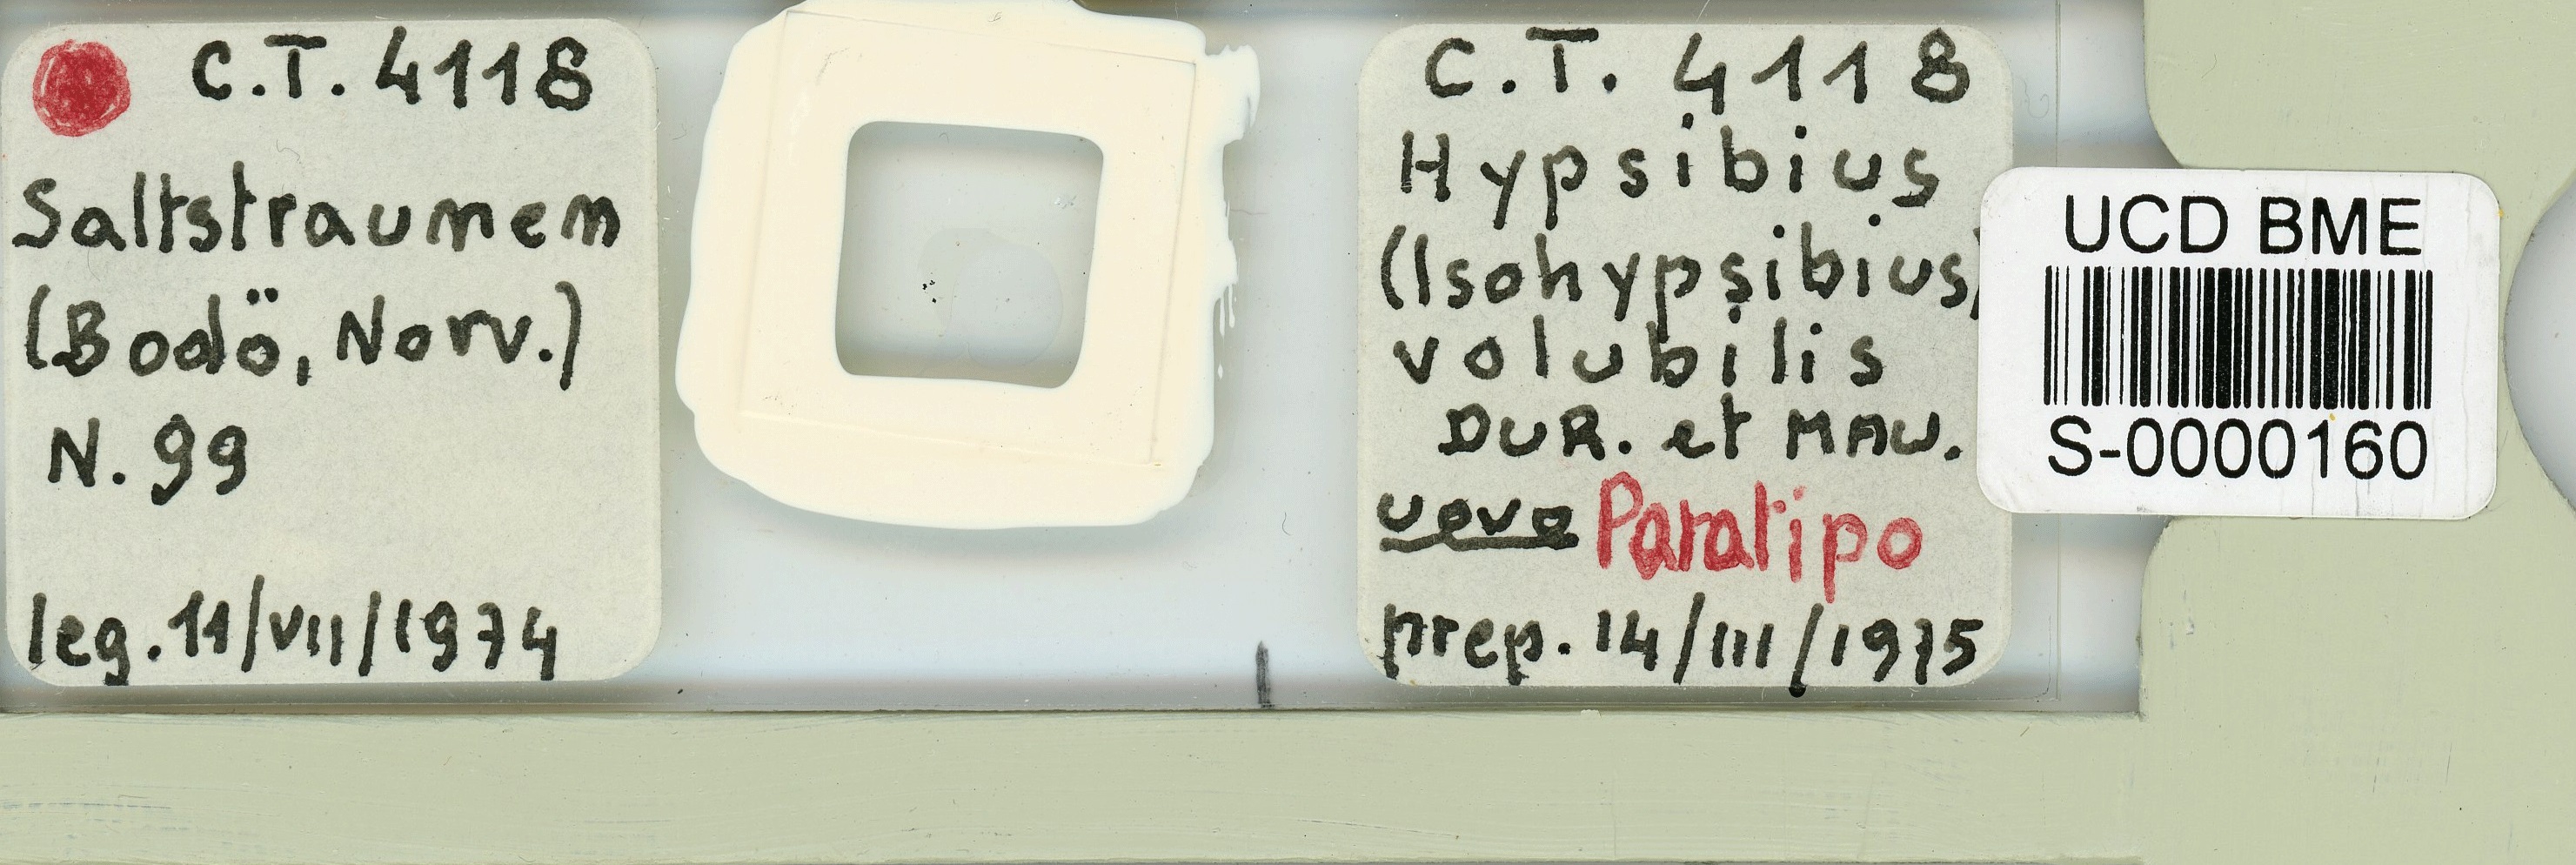 C.T. 4118
Saltstraumen
(Bodö, Norv.)
N. 99
leg. 11/VII/1974
C.T. 4118
Hypsibius
(Isohypsibius)
volubilis
DUR. et MAU.
uovo Paratipo
prep. 14/III/1975
UCD BME
S-0000160